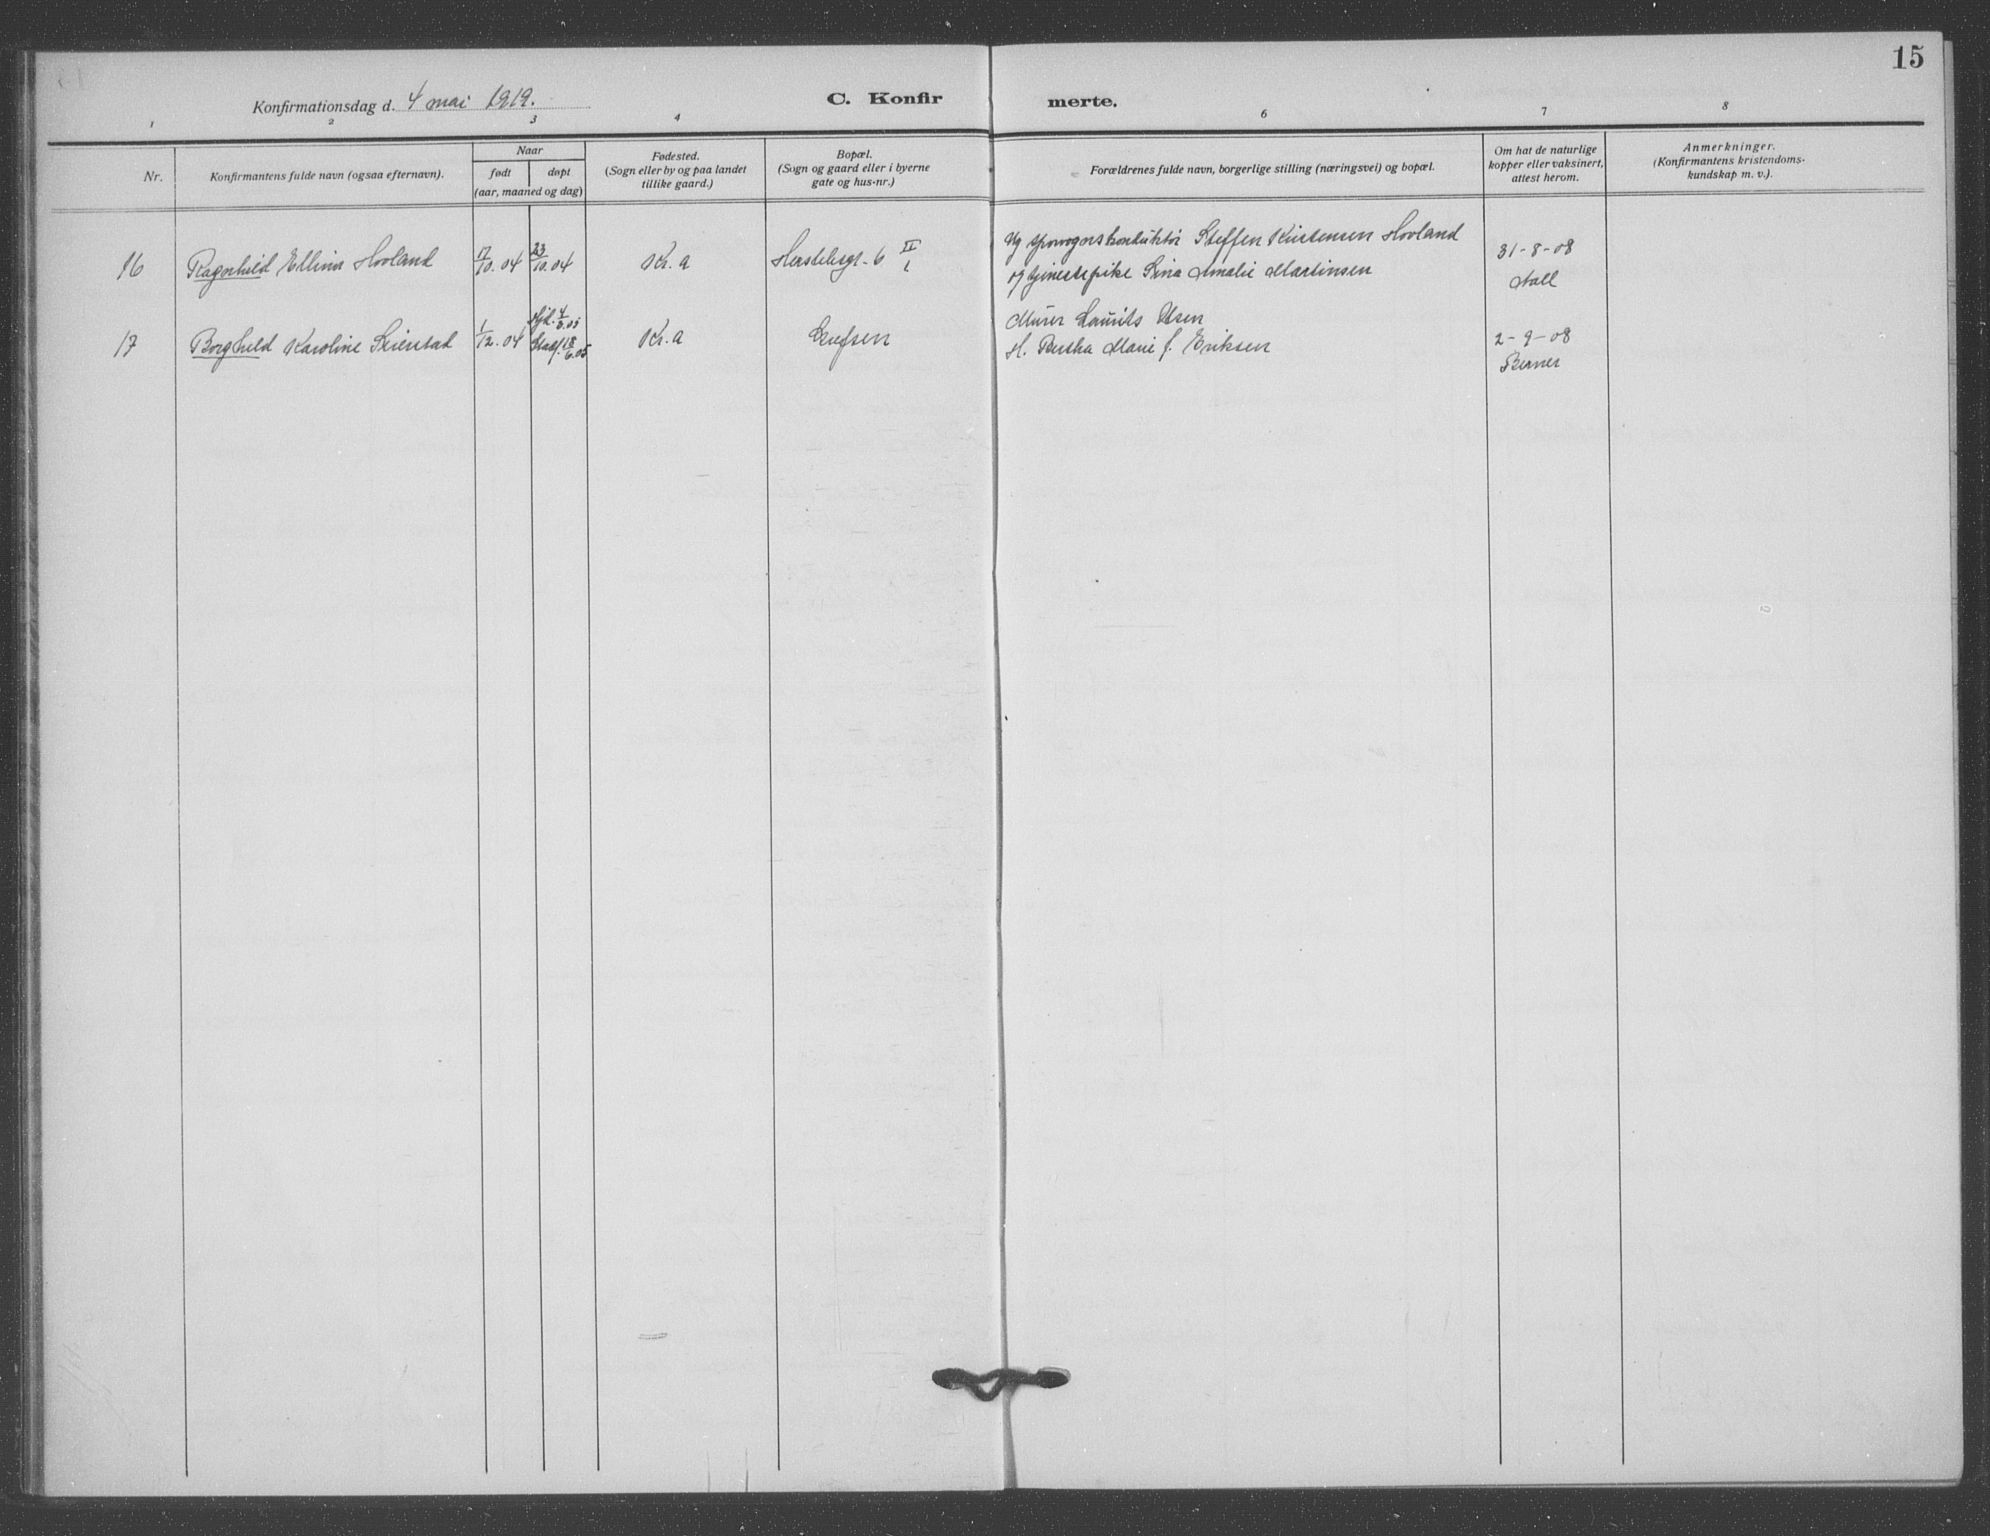 15
Konfirmationsdag d. 4 mai 1919.
C. Konfir
merte.
1
2
3
4
6
7
8
Nr.
Konfirmantens fulde navn (ogsaa efternavn).
Naar
født
døpt
(aar, maaned og dag)
Fødested.
(Sogn eller by og paa landet
tillike gaard.)
Bopæl.
(Sogn og gaard eller i byerne
gate og hus-nr.)
Forældrenes fulde navn, borgerlige stilling (næringsvei) og bopæl.
Om hat de naturlige
kopper eller vaksinert,
attest herom.
Anmerkninger.
(Konfirmantens kristendoms-
kundskap m. v.).
16
Ragnhild Ellina Hovland
17/10.04
23/10.04
Kr.a
6 II/1
Ug sporvogns konduktør Steffen Kristensen Hovland
og tjenestepike Lina Amalie Martinsen
31-8-08
Aall
17
Borghild Karoline Skierstad
1/12.04
Hjd. 4/6.05
18/6.05
Kr.a
Grefsen
Murer Laurits Olsen
H. Marie f. Eriksen
2-9-08
Berner